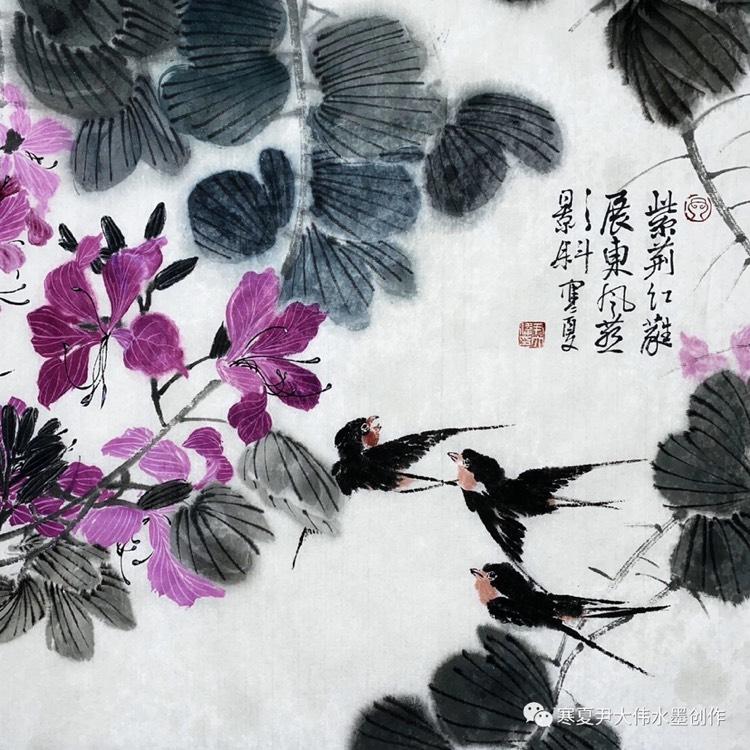 紫荆红
展東风燕
影斜 寒夏
寒夏尹大伟水墨创作